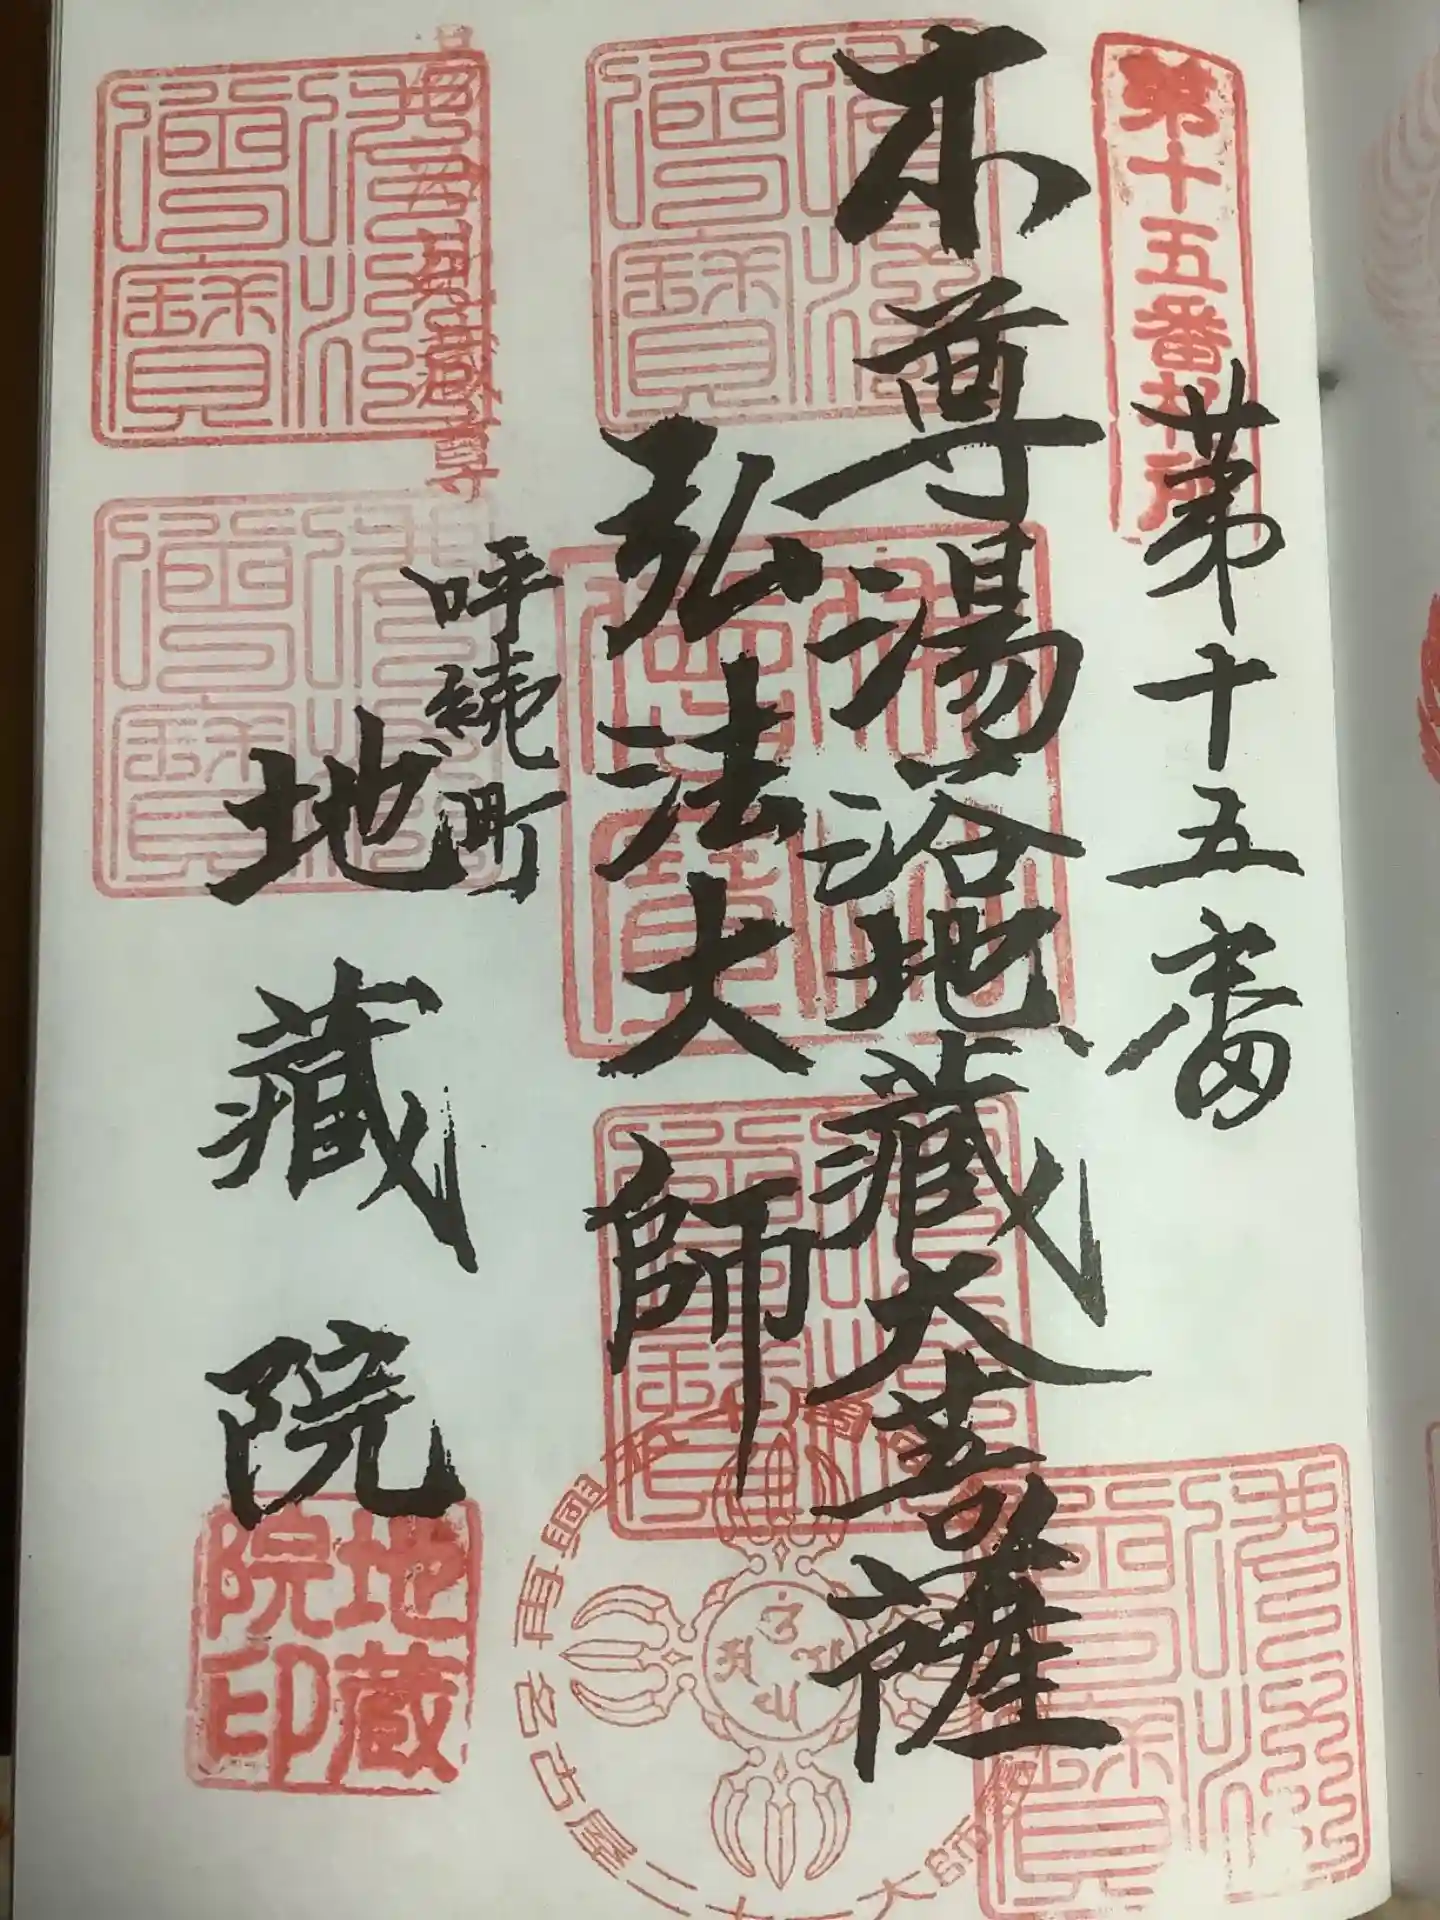 第十五番札所
第十五番
本尊湯浴地藏大菩薩
弘法大師
呼續町
地藏院
佛法僧寶
地蔵院印
再興
名古屋二十一大師